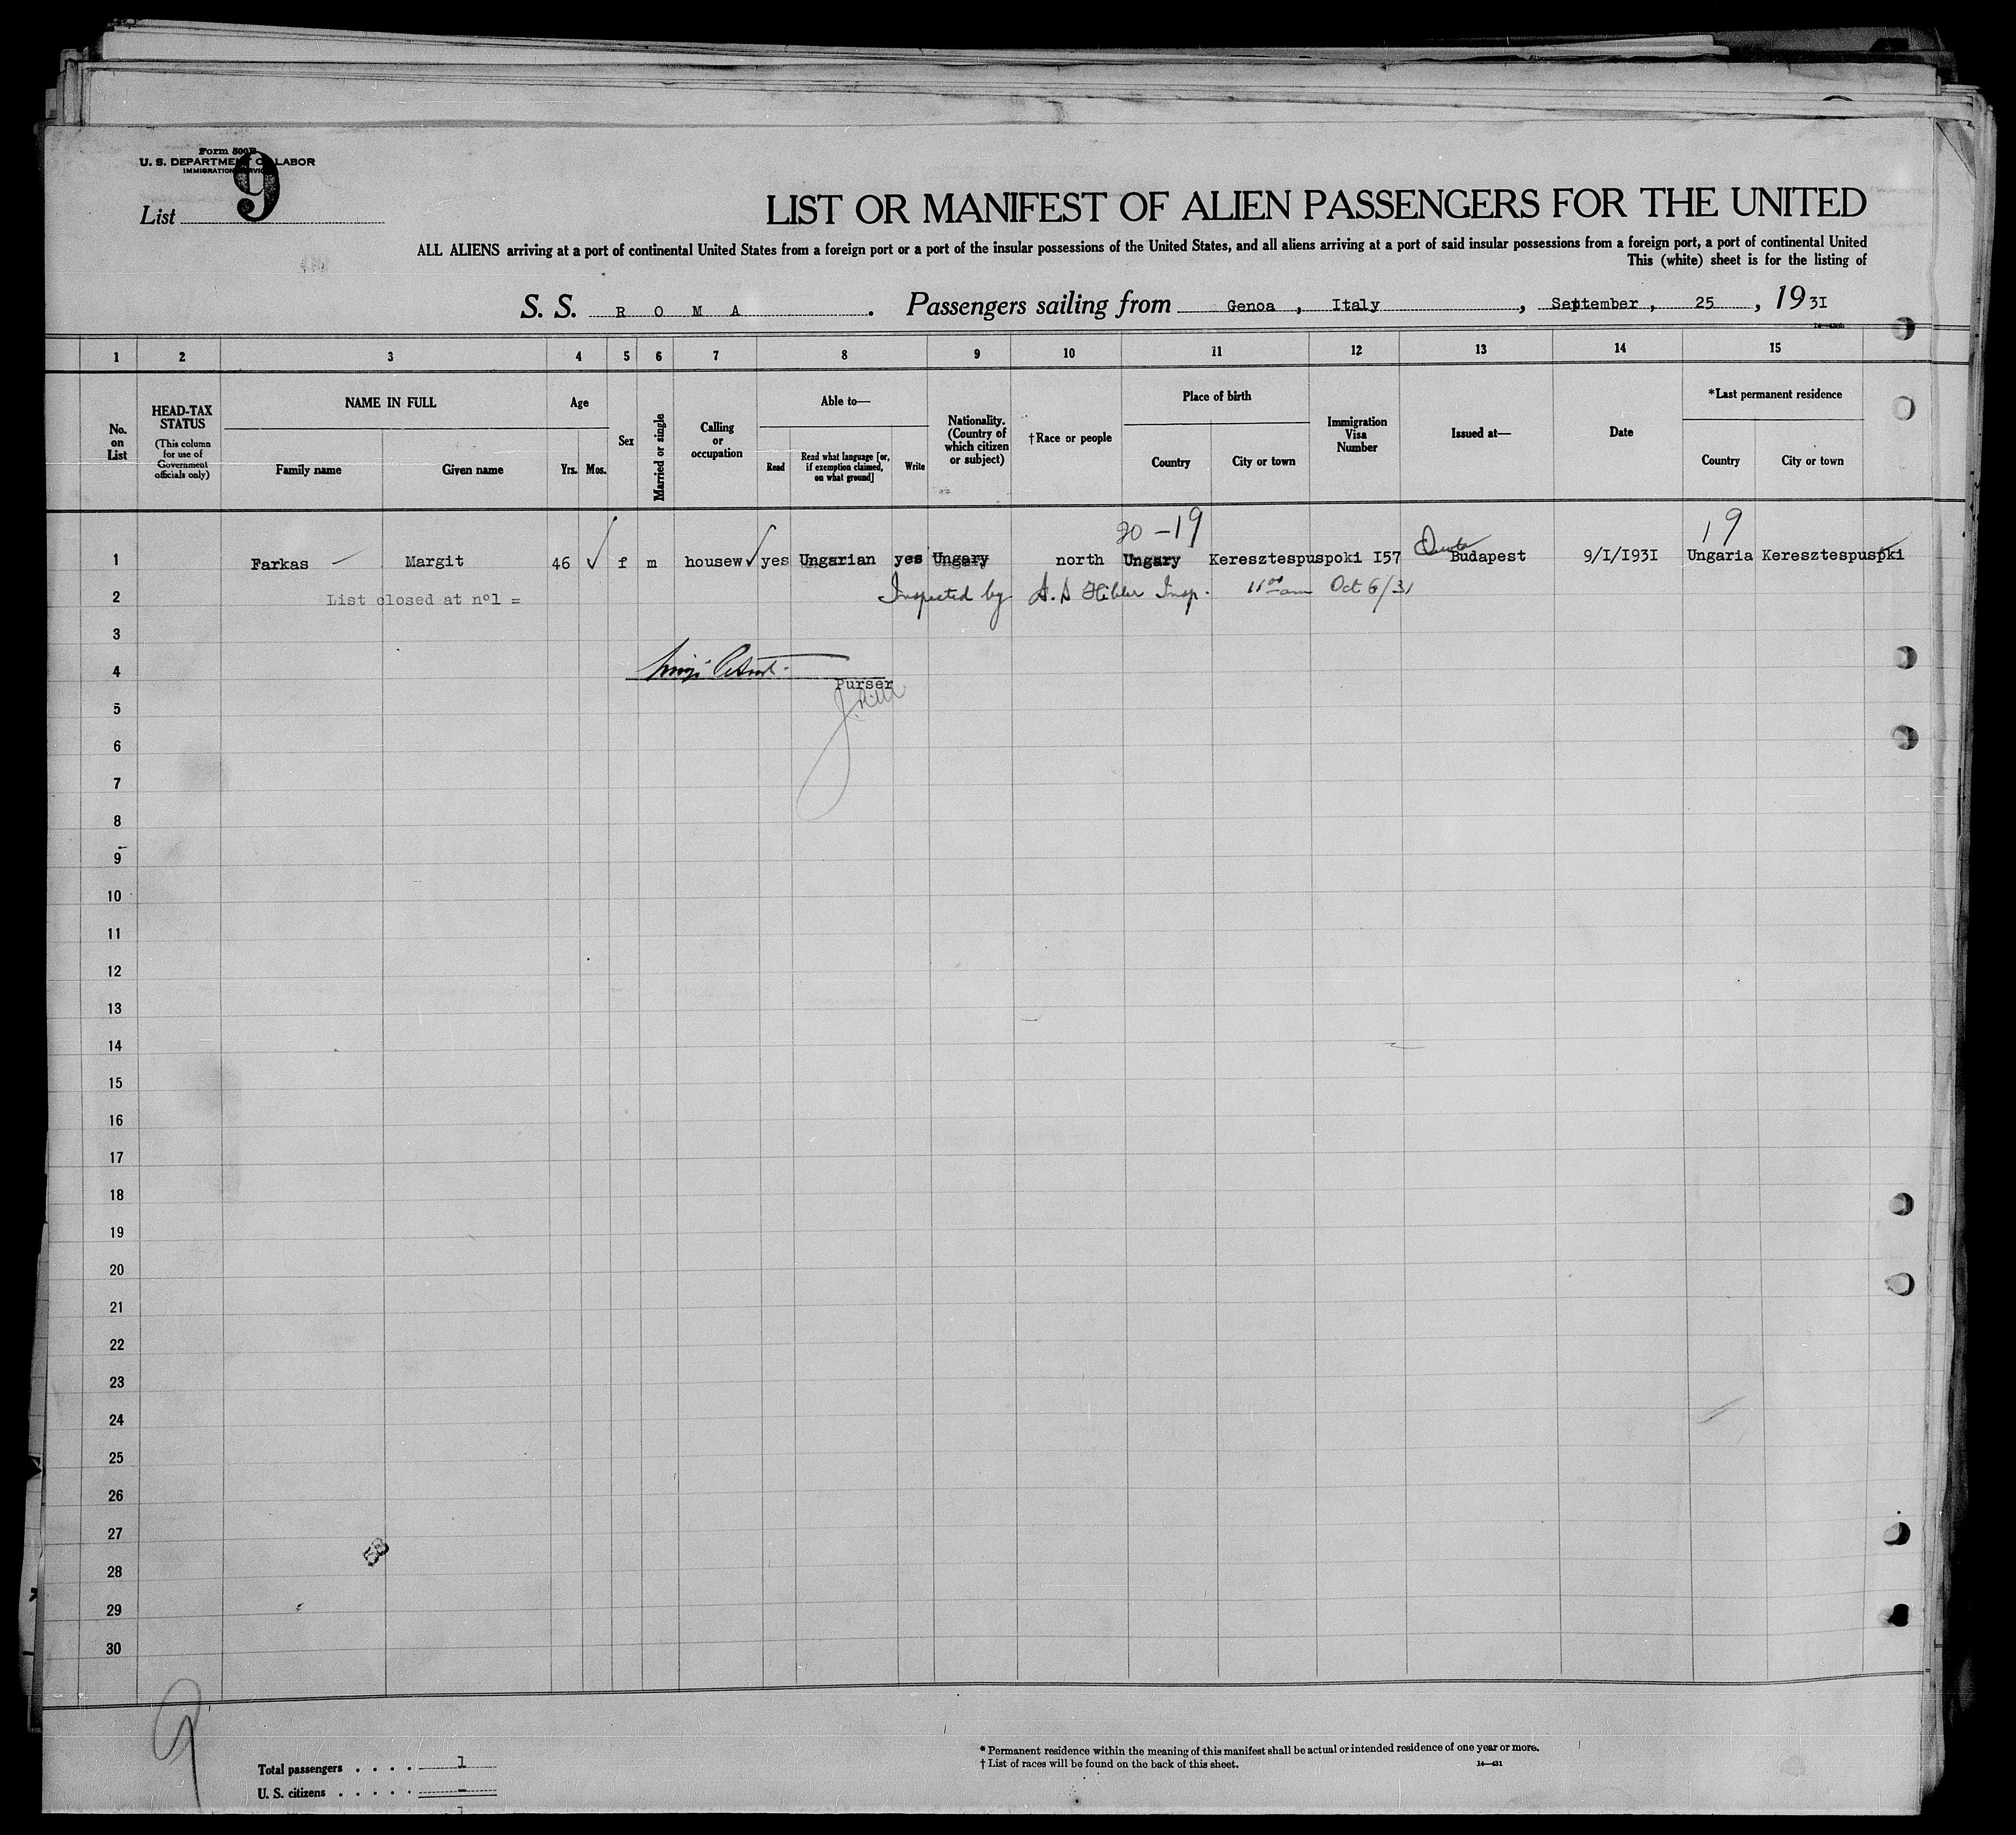 Form 500B
U. S. DEPARTMENT OF LABOR
IMMIGRATION SERVICE
List 9
LIST OR MANIFEST OF ALIEN PASSENGERS FOR THE UNITED
ALL ALIENS arriving at a port of continental United States from a foreign port or a port of the insular possessions of the United States, and all aliens arriving at a port of said insular possessions from a foreign port, a port of continental United
This (white) sheet is for the listing of
S. S. R O M A . Passengers sailing from Genoa , Italy , September , 25 , 19 31
14—430b
1 2 3 4 5 6 7 8 9 10 11 12 13 14 15
No. on List
HEAD-TAX STATUS (This column for use of Government officials only)
NAME IN FULL
Family name Given name
Age
Yrs. Mos.
Sex
Married or single
Calling or occupation
Able to—
Read
Read what language [or, if exemption claimed, on what ground]
Write
Nationality. (Country of which citizen or subject)
†Race or people
Place of birth
Country City or town
Immigration Visa Number
Issued at—
Date
*Last permanent residence
Country City or town
-19 19
1 Farkas Margit 46 f m housew yes Ungarian yes Ungary north Ungary Keresztespuspoki I57 Budapest 9/I/I93I Ungaria Keresztespuspki
2 List closed at nº1 = Inspected by Insp. 11 00 am Oct 6/31
3
4
Purser
5
6
7
8
9
10
11
12
13
14
15
16
17
18
19
20
21
22
23
24
25
26
27
28
29
30
9
Total passengers . . . . 1
U. S. citizens . . . . . –
* Permanent residence within the meaning of this manifest shall be actual or intended residence of one year or more.
† List of races will be found on the back of this sheet.
14—431